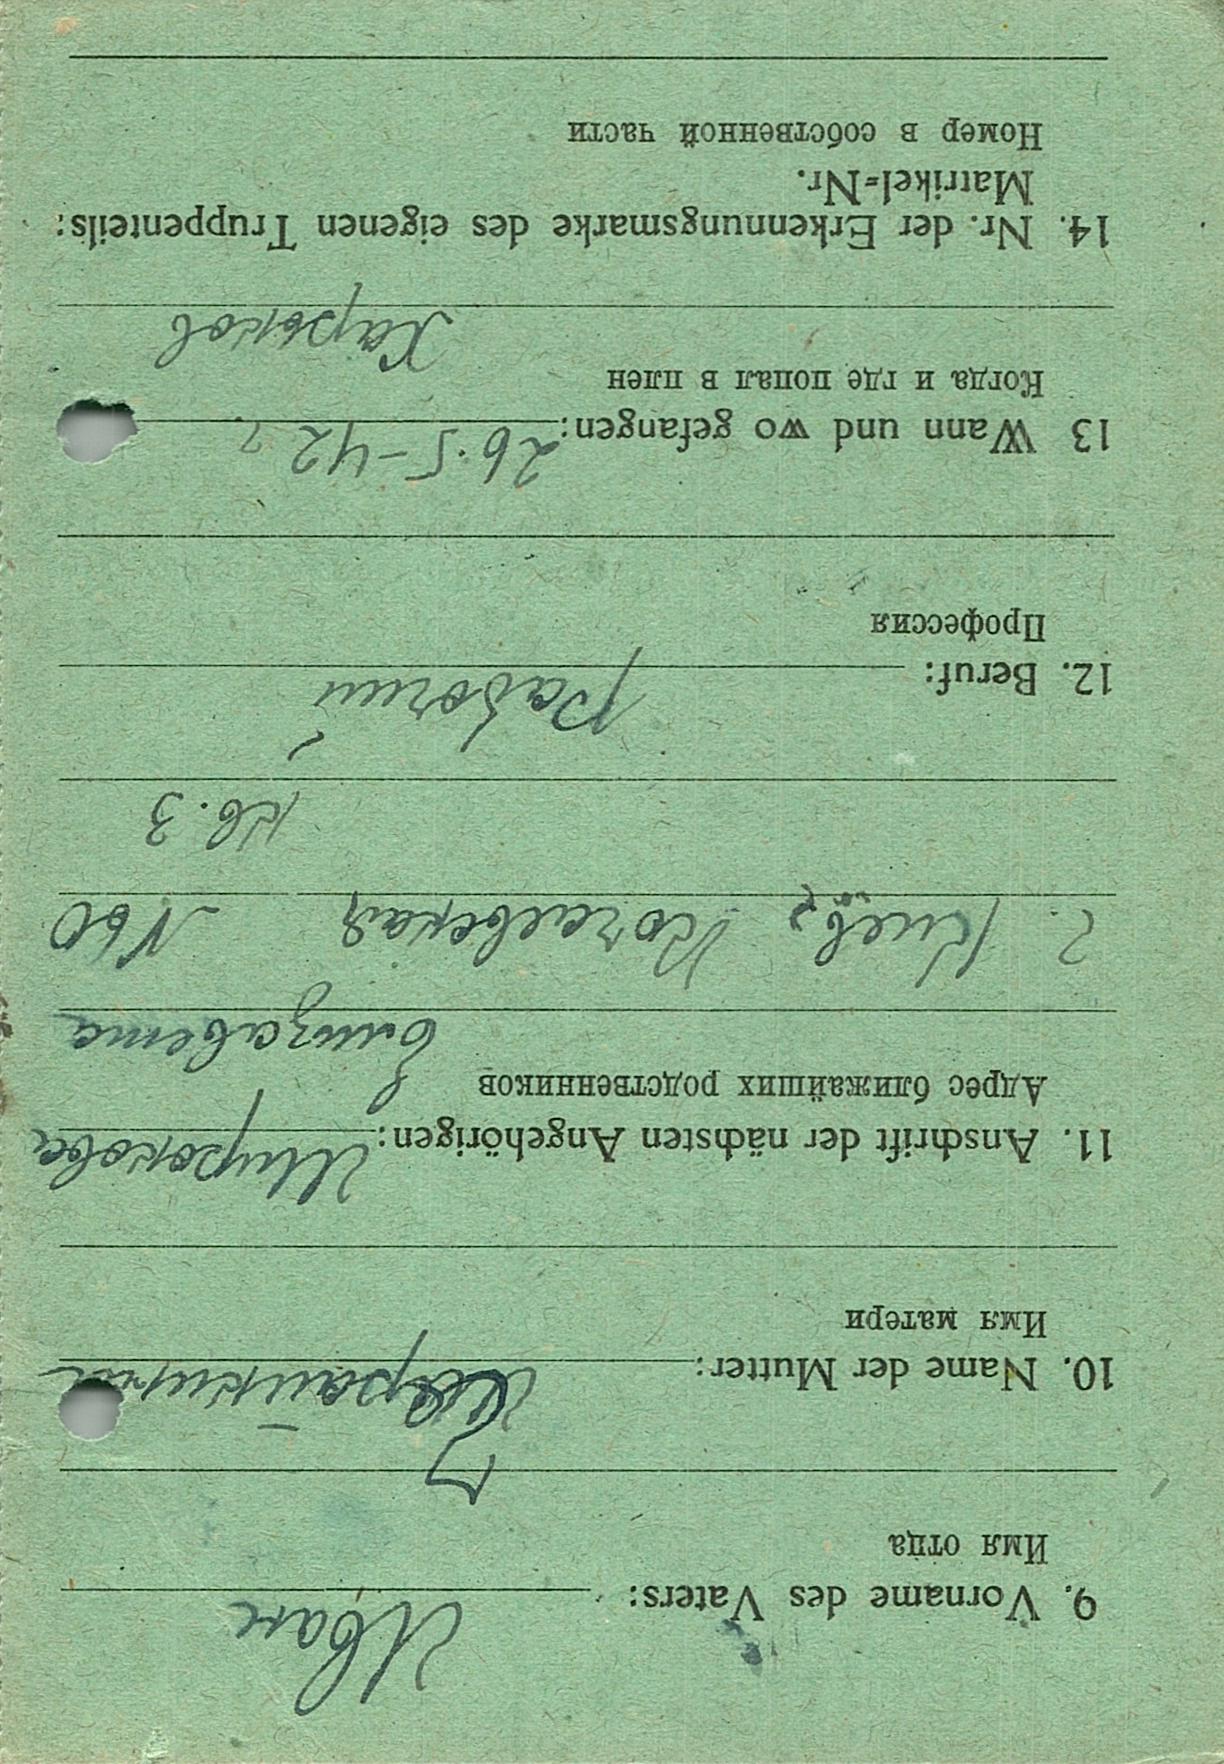 9. Vorname des Vaters: Иван
Имя отца
10. Name der Mutter:
Имя матери
11. Anschrift der nächsten Angehörigen: Широкова
Адрес ближайших родственников
Елизавета
г. Киев,
кв. 3
12. Beruf: рабочий
Профессия
13 Wann und wo gefangen: 26.5-42 г.
Когда и где попал в плен
Харьков
14. Nr. der Erkennungsmarke des eigenen Truppenteils:
Matrikel=Nr.
Номер в собственной части